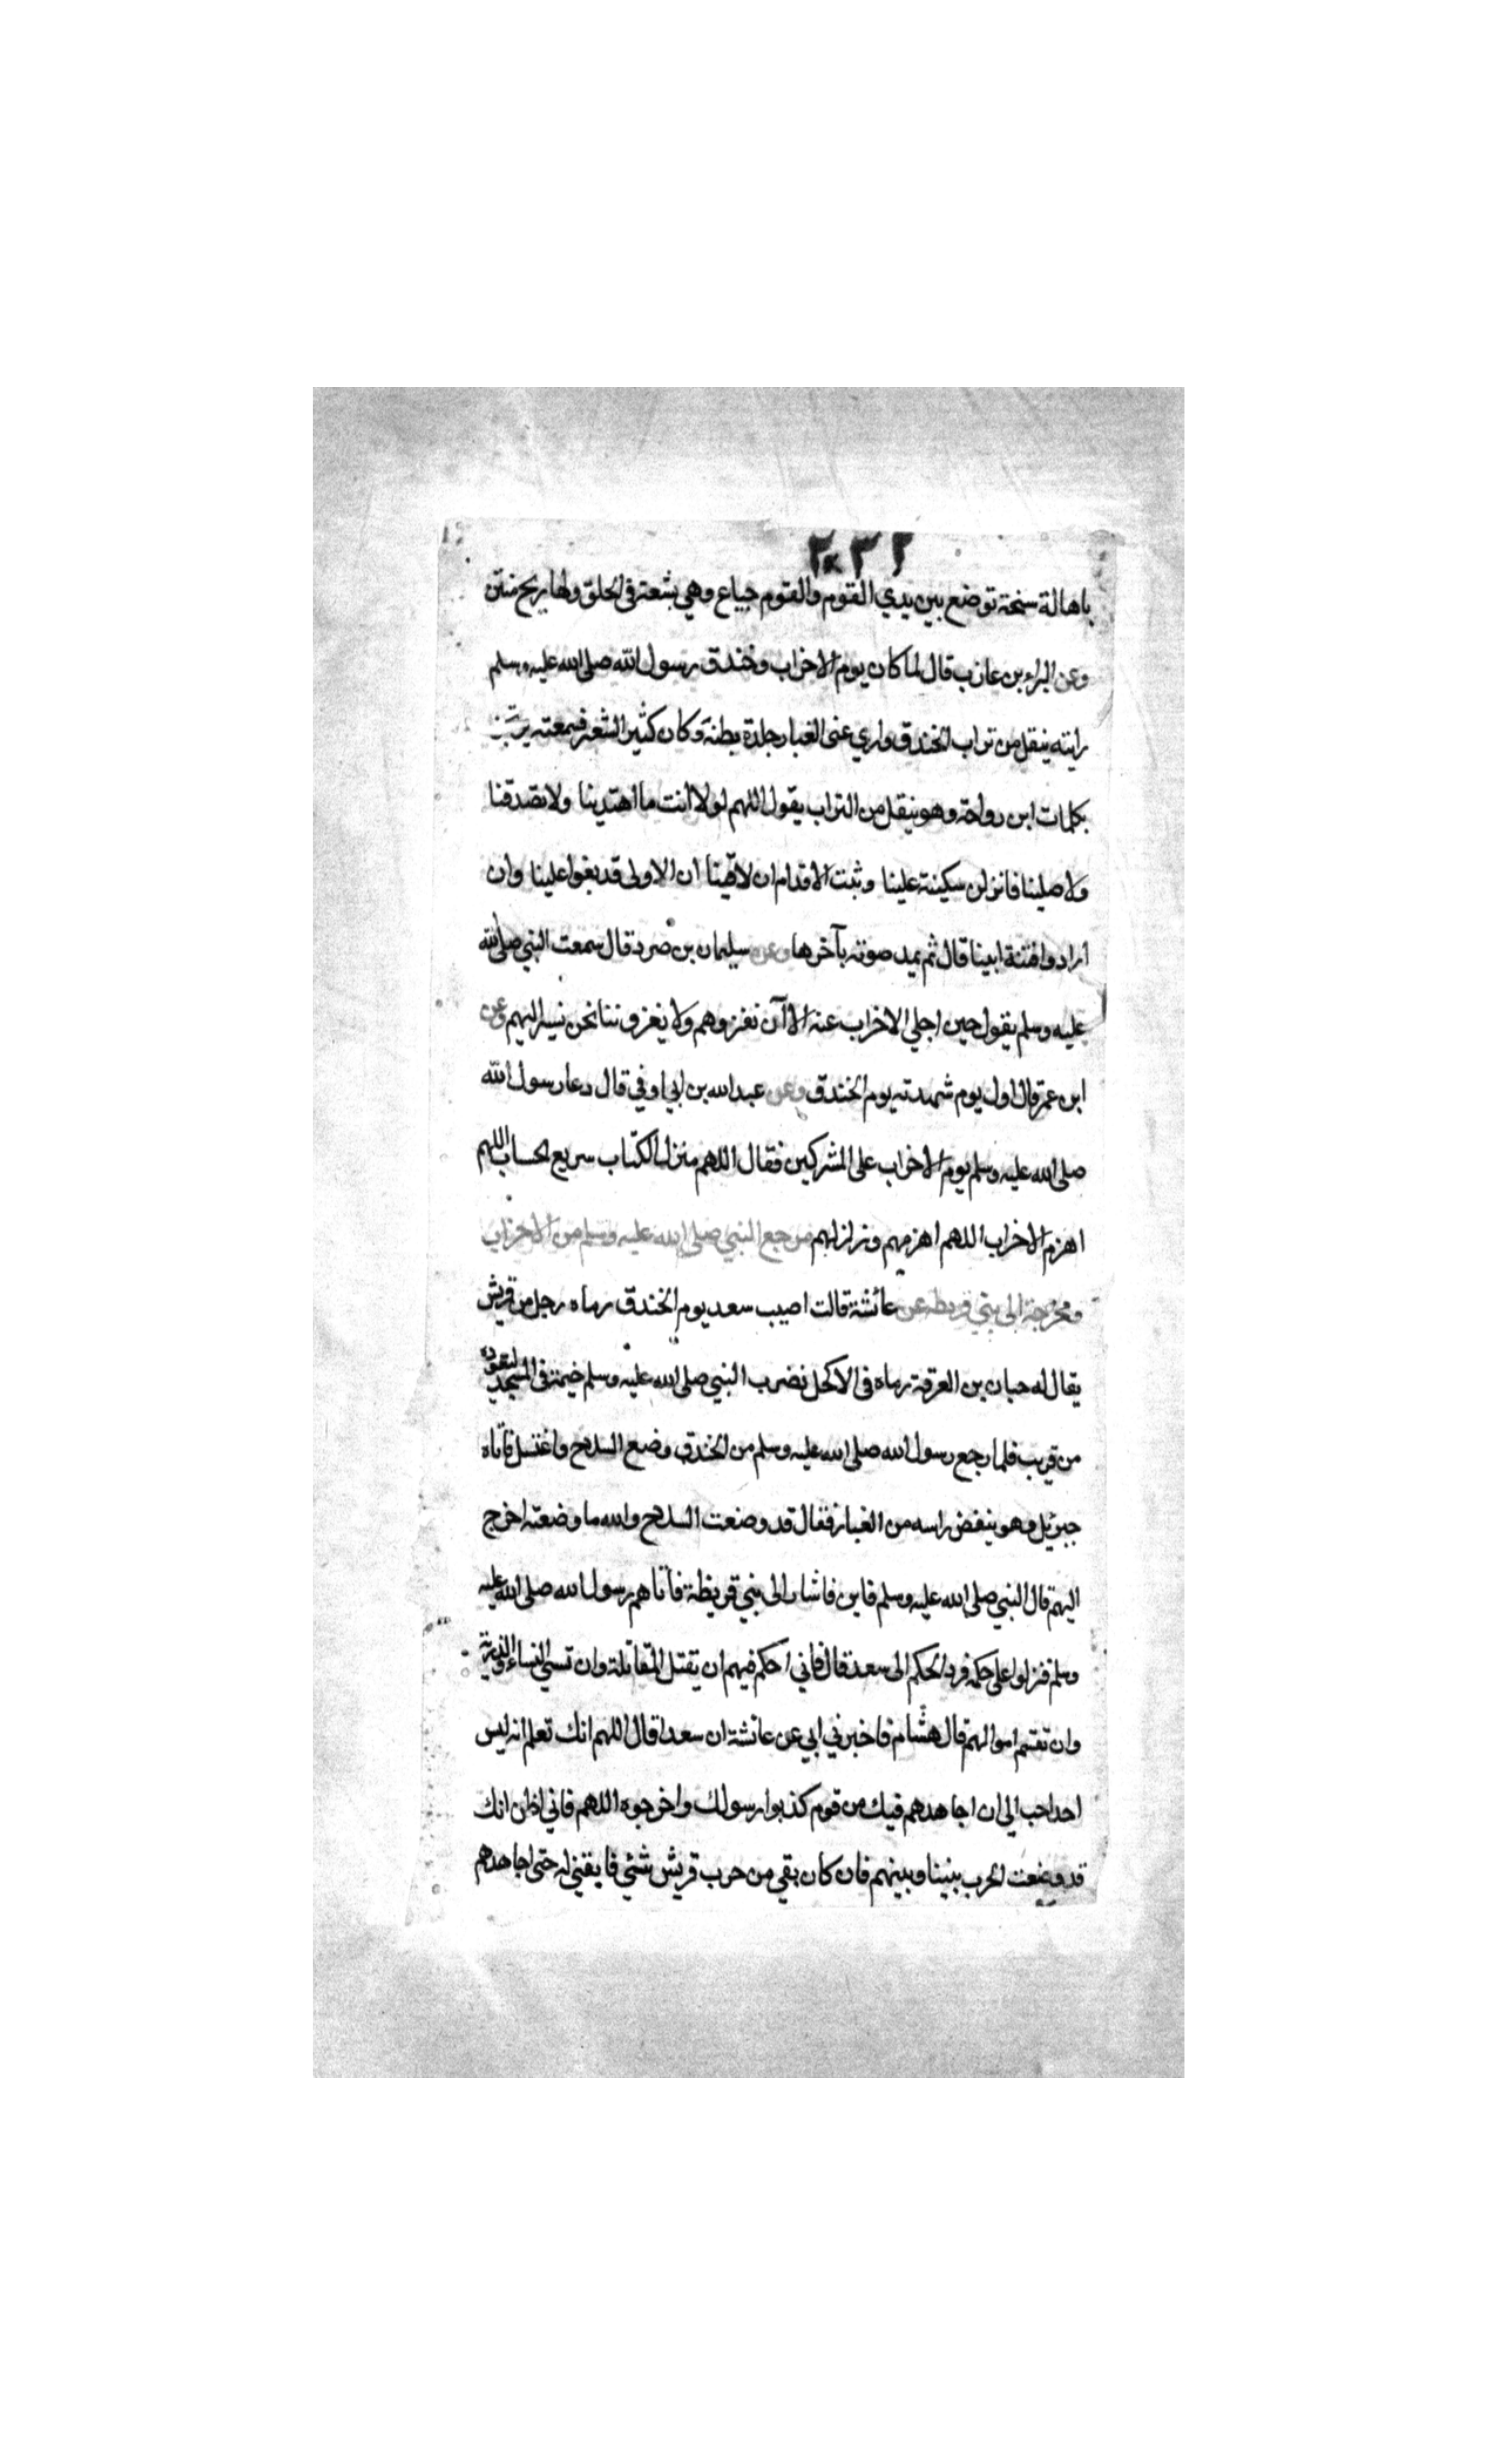 باهالة سنخة توضع بين يدي القوم والقوم جياع وهي بشعة في الحلق ولها ريح منتن
وعن البراء بن عازب قال لما كان يوم الاحزاب وخندق رسول الله صلى الله عليه وسلم
رايته ينقل من تراب الخندق واري عني الغبار جلدة بطنه وكان كثير الشعر فسمعته يرتجز
بكلمات ابن رواحة وهو ينقل من التراب يقول اللهم لولا انت ما اهتدينا ولا تصدقنا
ولا صلينا فانزلن سكينة علينا وثبت الاقدام ان لاقينا ان الاولى قد بغوا علينا وان
ارادوا فتنة ابينا قال ثم يمد صوته بآخرها وعن سليمان بن صرد قال سمعت النبي صلى الله
عليه وسلم يقول حين اجلي الاحزاب عنه الاآن نغزوهم ولا يغزوننا نحن نسير اليهم وعن
ابن عمر قال اول يوم شهدته يوم الخندق وعن عبد الله بن ابي اوفي قال دعا رسول الله
صلى الله عليه وسلم يوم الاحزاب على المشركين فقال اللهم منزل الكتاب سريع الحساب اللهم
اهزم الاحزاب اللهم اهزمهم وزلزلهم مرجع النبي صلى الله عليه وسلم من الاحزاب
ومخرجه الى بني قريظه عن عائشة قالت اصيب سعد يوم الخندق رماه رجل من قريش
يقال له حبان بن العرقة رماه في الاكحل نضرب النبي صلى الله عليه وسلم خيمة في المسجد ليعوده
من قريب فلما رجع رسول الله صلى الله عليه وسلم من الخندق وضع السلاح واغتسل فاتاه
جبرئيل وهو ينفض راسه من الغبار فقال قد وضعت السلاح والله ما وضعته اخرج
اليهم قال النبي صلى الله عليه وسلم فاين فاشار الى بني قريظة فأتاهم رسول الله صلى الله عليه
وسلم فنزلوا على حكمه فرد الحكم الى سعد قال فاني احكم فيهم ان يقتل المقاتلة وان تسبي النساء والذرية
وان تقسم اموالهم قال هشام فاخبرني ابي عن عائشة ان سعدا قال اللهم انك تعلم انه ليس
احد احب الي ان اجاهدهم فيك من قوم كذبوا رسولك واخرجوه اللهم فاني اظن انك
قد وضعت الحرب بيننا وبينهم فان كان بقي من حرب قريش شئي فابقني له حتى اجاهدهم